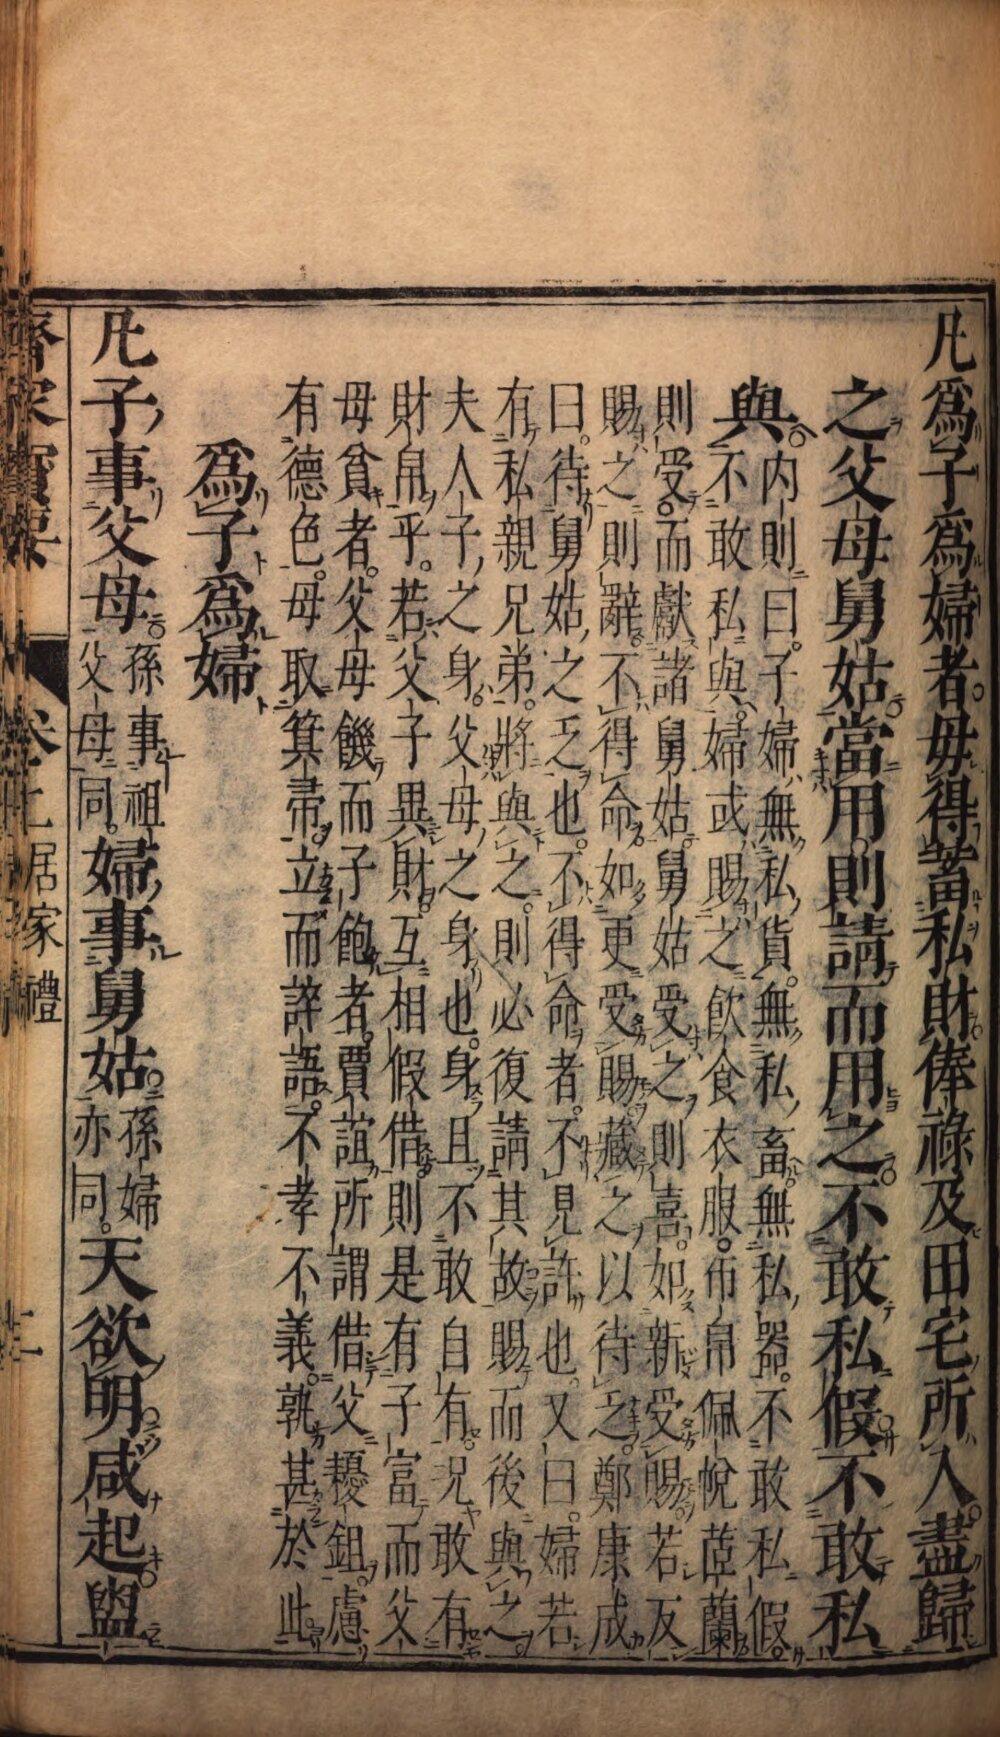 凡爲子爲婦者毋得蓄私財俸祿及田宅所入盡歸
之父母舅姑當用則請而用之不敢私假不敢私
與
内則曰子婦無私貨無私畜無私器不敢私假
不敢私與婦或賜之飲食衣服布帛佩帨茝蘭
則受而獻諸舅姑舅姑受之則喜如新受賜若反
賜之則辭不得命如更受賜藏之以待乏鄭康成
曰待舅姑之乏也不得命者不見許也又曰婦若
有私親兄弟將與之則必復請其故賜而後與之
夫人子之身父母之身也身且不敢自有況敢有
財帛乎若父子異財互相假借則是有子富而父
母貧者父母饑而子飽者賈誼所謂借父耰鉏慮
有德色母取箕帚立而誶語不孝不義孰甚於此
爲子爲婦
凡子事父母孫事祖父母同婦事舅姑孫婦亦同天欲明咸起盥
齊家寶要
卷上居家禮